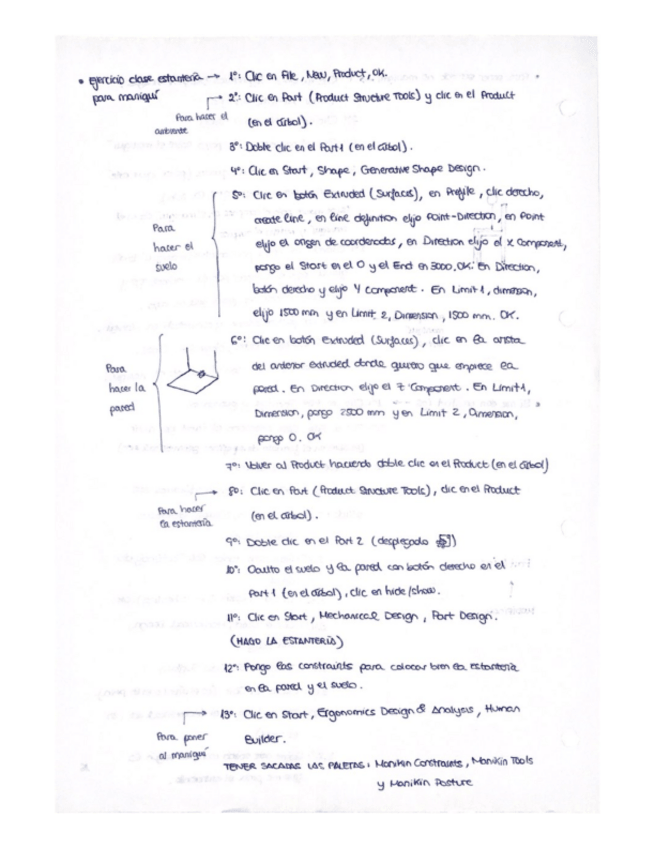 • Ejercicio clase estantería → 1º: Clic en File, New, Product, OK.
para maniquí
2º: Clic en Part (Product Structure Tools) y clic en el Product
Para hacer el ambiente
(en el árbol).
3º: Doble clic en el Part1 (en el árbol).
4º: Clic en Start, Shape, Generative Shape Design.
Para hacer el suelo
5º: Clic en botón Extruded (Surfaces), en Profile, clic derecho,
create line, en line definition elijo Point-Direction, en Point
elijo el origen de coordenadas, en Direction elijo el X Component,
pongo el Start en el 0 y el End en 3000, OK. En Direction,
botón derecho y elijo Y Component. En Limit1, dimension,
elijo 1500 mm y en Limit 2, Dimension, 1500 mm. OK.
Para hacer la pared
6º: Clic en botón Extruded (Surfaces), clic en la arista
del anterior extruded donde quiero que empiece la
pared. En Direction elijo el Z Component. En Limit1,
Dimension, pongo 2500 mm y en Limit 2, Dimension,
pongo 0. OK
7º: Volver al Product haciendo doble clic en el Product (en el árbol)
8º: Clic en Part (Product Structure Tools), clic en el Product
Para hacer la estantería
(en el árbol).
9º: Doble clic en el Part 2 (desplegado )
10º: Oculto el suelo y la pared con botón derecho en el
Part 1 (en el árbol), clic en hide/show.
11º: Clic en Start, Mechanical Design, Part Design.
(HAGO LA ESTANTERÍA)
12º: Pongo las constraints para colocar bien la estantería
en la pared y el suelo.
13º: Clic en Start, Ergonomics Design & Analysis, Human
Para poner al maniquí
Builder.
TENER SACADAS LAS PALETAS: Manikin Constraints, Manikin Tools
y Manikin Posture